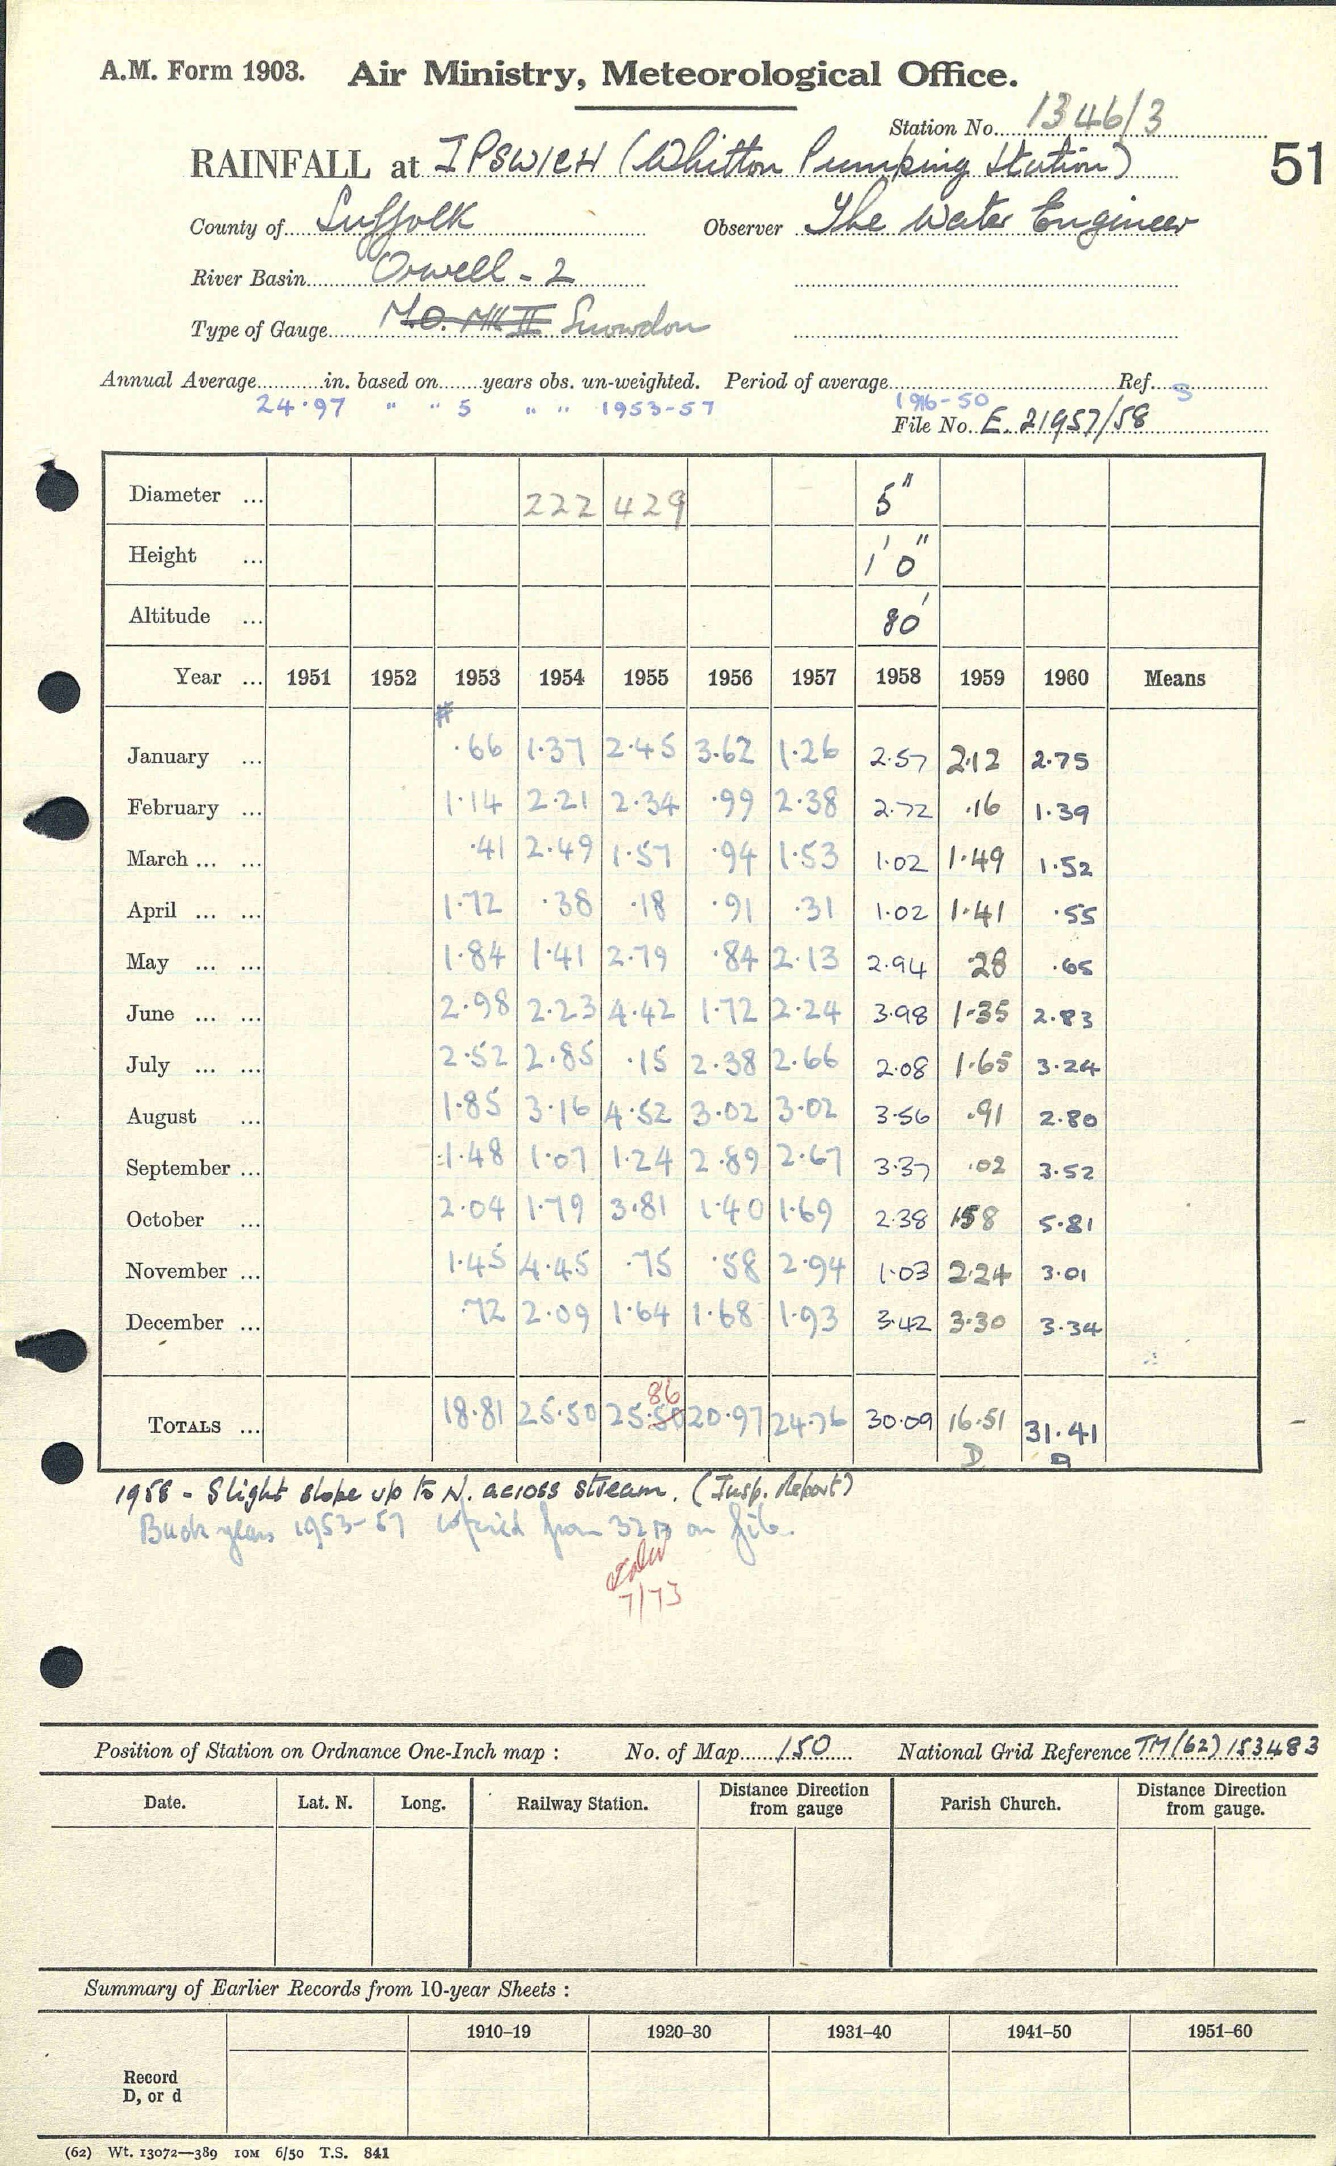 A.M. Form 1903. Air Ministry, Meteorological Office.
Station No. 1346/3
RAINFALL at IPSWICH (Whitton Pumping Station)
51
County of Suffolk Observer The Water Engineer
River Basin Orwell - 2
Type of Gauge M.O. MK II Snowdon
Annual Average in. based on years obs. un-weighted. Period of average Ref. S
24.97 " " 5 " " 1953-57 1916-50
File No. E. 21957/58
Diameter ... 222 429 5"
Height ... 1' 0"
Altitude ... 80'
Year ... 1951 1952 1953 1954 1955 1956 1957 1958 1959 1960 Means
#
January ... .66 1.37 2.45 3.62 1.26 2.57 2.12 2.75
February ... 1.14 2.21 2.34 .99 2.38 2.72 .16 1.39
March ... ... .41 2.49 1.57 .94 1.53 1.02 1.49 1.52
April ... ... 1.72 .38 .18 .91 .31 1.02 1.41 .55
May ... ... 1.84 1.41 2.79 .84 2.13 2.94 .28 .65
June ... ... 2.98 2.23 4.42 1.72 2.24 3.98 1.35 2.83
July ... ... 2.52 2.85 .15 2.38 2.66 2.08 1.65 3.24
August ... 1.85 3.16 4.52 3.02 3.02 3.56 .91 2.80
September ... 1.48 1.07 1.24 2.89 2.67 3.37 .02 3.52
October ... 2.04 1.79 3.81 1.40 1.69 2.38 1.58 5.81
November ... 1.45 4.45 .75 .58 2.94 1.03 2.24 3.01
December ... .72 2.09 1.64 1.68 1.93 3.42 3.30 3.34
86
TOTALS ... 18.81 25.50 25.50 20.97 24.76 30.09 16.51 31.41
D D
1958 - Slight slope up to N. across stream. (Insp. Report)
Back years 1953-57 copied from 32B on file.
7/73
Position of Station on Ordnance One-Inch map : No. of Map 150 National Grid Reference TM(62)153483
Date. Lat. N. Long. Railway Station. Distance Direction from gauge Parish Church. Distance Direction from gauge.
Summary of Earlier Records from 10-year Sheets :
1910–19 1920–30 1931–40 1941–50 1951–60
Record
D, or d
(62) Wt. 13072—389 10M 6/50 T.S. 841